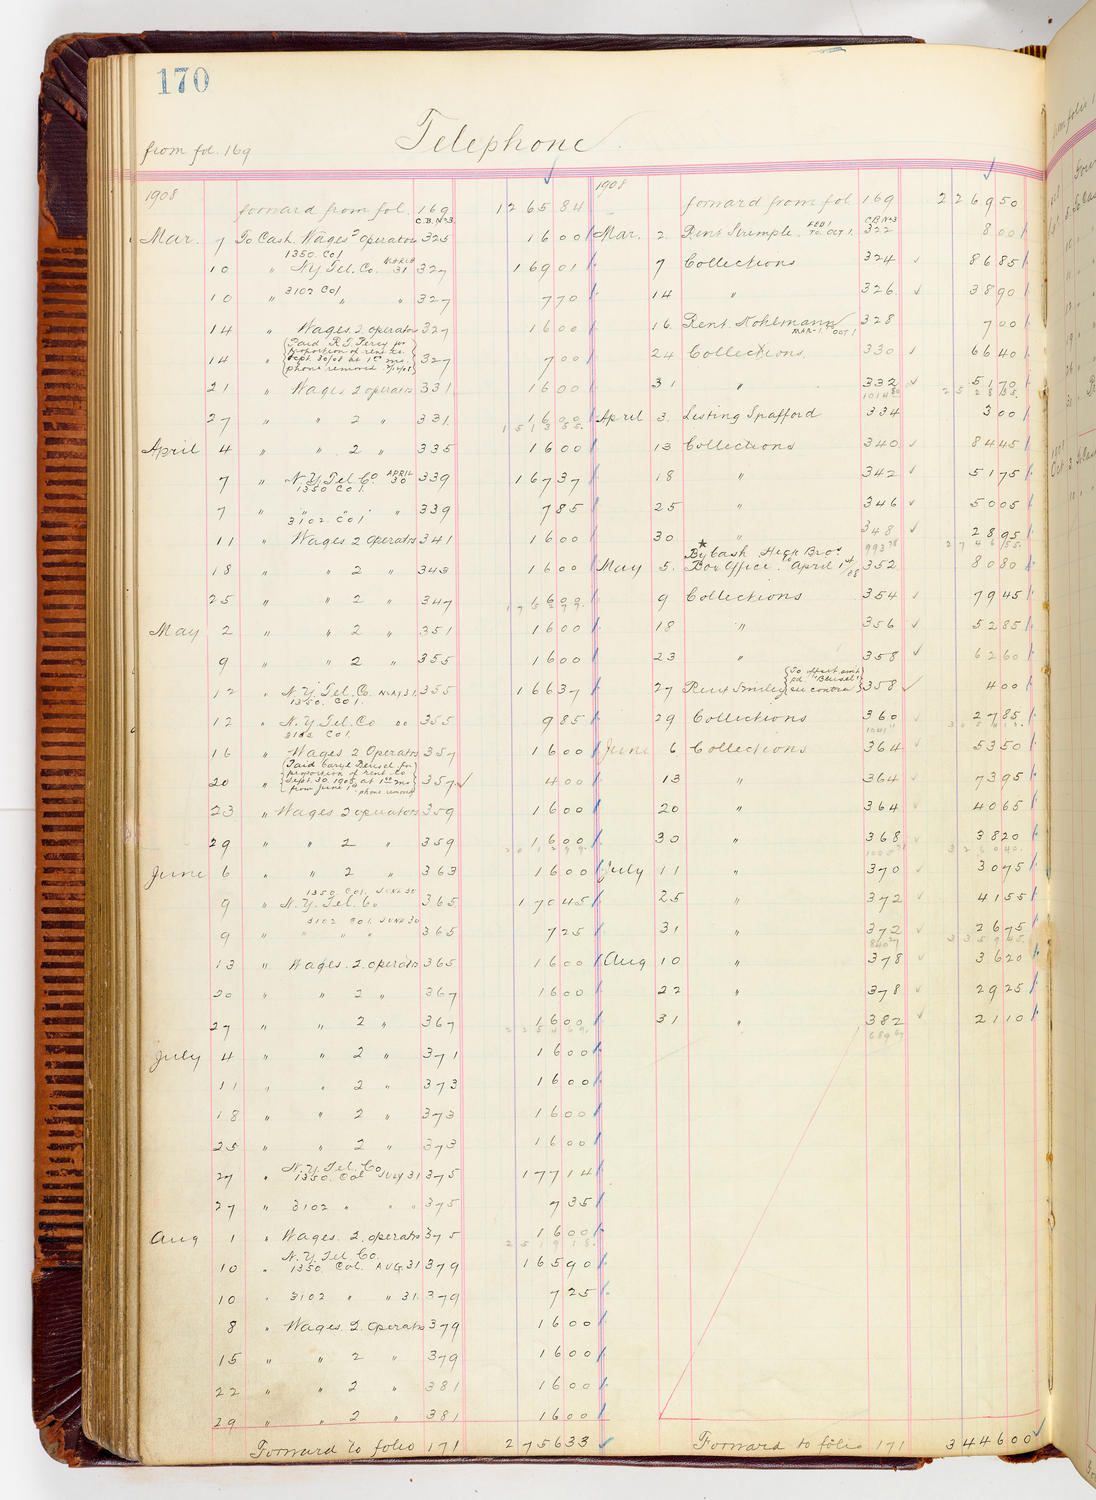 170
Telephone
from fol. 169
1908
forward from fol. 169 1265 84
C.B. No 3
Mar. 7 To Cash. Wages 2 operators 325 16 00
1350 Col
10 " N.Y. Tel. Co. March 31 327 169 01
3102 Col
10 " " " 327 7 70
14 " Wages 2 operators 327 16 00
14 " {Paid R.T. Percy for proportion of rent to Sept 30/08 at 1 00 mo. phone removed} 327 7 00
21 " Wages 2 operators 331 16 00
27 " " 2 " 331 16 00
1513 55
April 4 " " 2 " 335 16 00
7 " N.Y. Tel. Co April 30 339 167 37
1350 Col.
7 " " " " 339 7 85
3102 Col
11 " Wages 2 operators 341 16 00
18 " " 2 " 343 16 00
25 " " 2 " 347 16 00
May 2 " " 2 " 351 16 00
9 " " 2 " 355 16 00
12 " N.Y. Tel. Co. May 31. 355 166 37
1350. Col.
12 " N.Y. Tel. Co " 355 9 85
3102 Col.
16 " Wages 2 Operators 357 16 00
20 " {Paid Caryl Bensel for proportion of rent to Sept. 30. 1908 at 1 00 mo from June 1st phone removed} 357 4 00
23 " Wages 2 operators 359 16 00
29 " " 2 " 359 16 00
June 6 " " 2 " 363 16 00
1350. Col. June 30
9 " N.Y. Tel. Co 365 170 45
3102 Col. June 30
9 " " " " 365 7 25
13 " Wages. 2. operators 365 16 00
20 " " 2 " 367 16 00
27 " " 2 " 367 16 00
July 4 " " 2 " 371 16 00
11 " " 2 " 373 16 00
18 " " 2 " 373 16 00
25 " " 2 " 373 16 00
27 " N.Y. Tel. Co 1350. Col July 31 375 177 14
27 " 3102 " " " 375 7 35
Aug 1 " Wages. 2. operators 375 16 00
2519 18
N.Y. Tel Co.
10 " 1350. Col. Aug. 31 379 165 90
10 " 3102 " " 31. 379 7 25
8 " Wages. 2. operators 379 16 00
15 " " 2 " 379 16 00
22 " " 2 " 381 16 00
29 " " 2 " 381 16 00
Forward to folio 171 2756 33
1908
forward from fol 169 2269 50
C.B. No 3
Mar. 2. Rent Strumple. Feb 1 to Oct 1. 322 8 00
7 Collections 324 86 85
14 " 326 38 90
16 Rent. Kohlmann Mar-1. to Oct. 1 328 7 00
24 Collections 330 66 40
31 " 332 51 70
2528 35
April 3. Listing Spafford 334 3 00
13 Collections 340 84 45
18 " 342 51 75
25 " 346 50 05
30 " 348 28 95
2746 55
By Cash. Hegr Bros
May 5. Box Office. to April 1st/08 352 80 80
9 Collections 354 79 45
18 " 356 52 85
23 " 358 62 60
27 Rent Smiley 358 4 00
29 Collections 360 27 85
June 6 Collections 364 53 50
13 " 364 73 95
20 " 364 40 65
30 " 368 38 20
July 11 " 370 30 75
25 " 372 41 55
31 " 372 26 75
3359 45
Aug 10 " 378 36 20
22 " 378 29 25
31 " 382 21 10
Forward to folio 171 3446 00